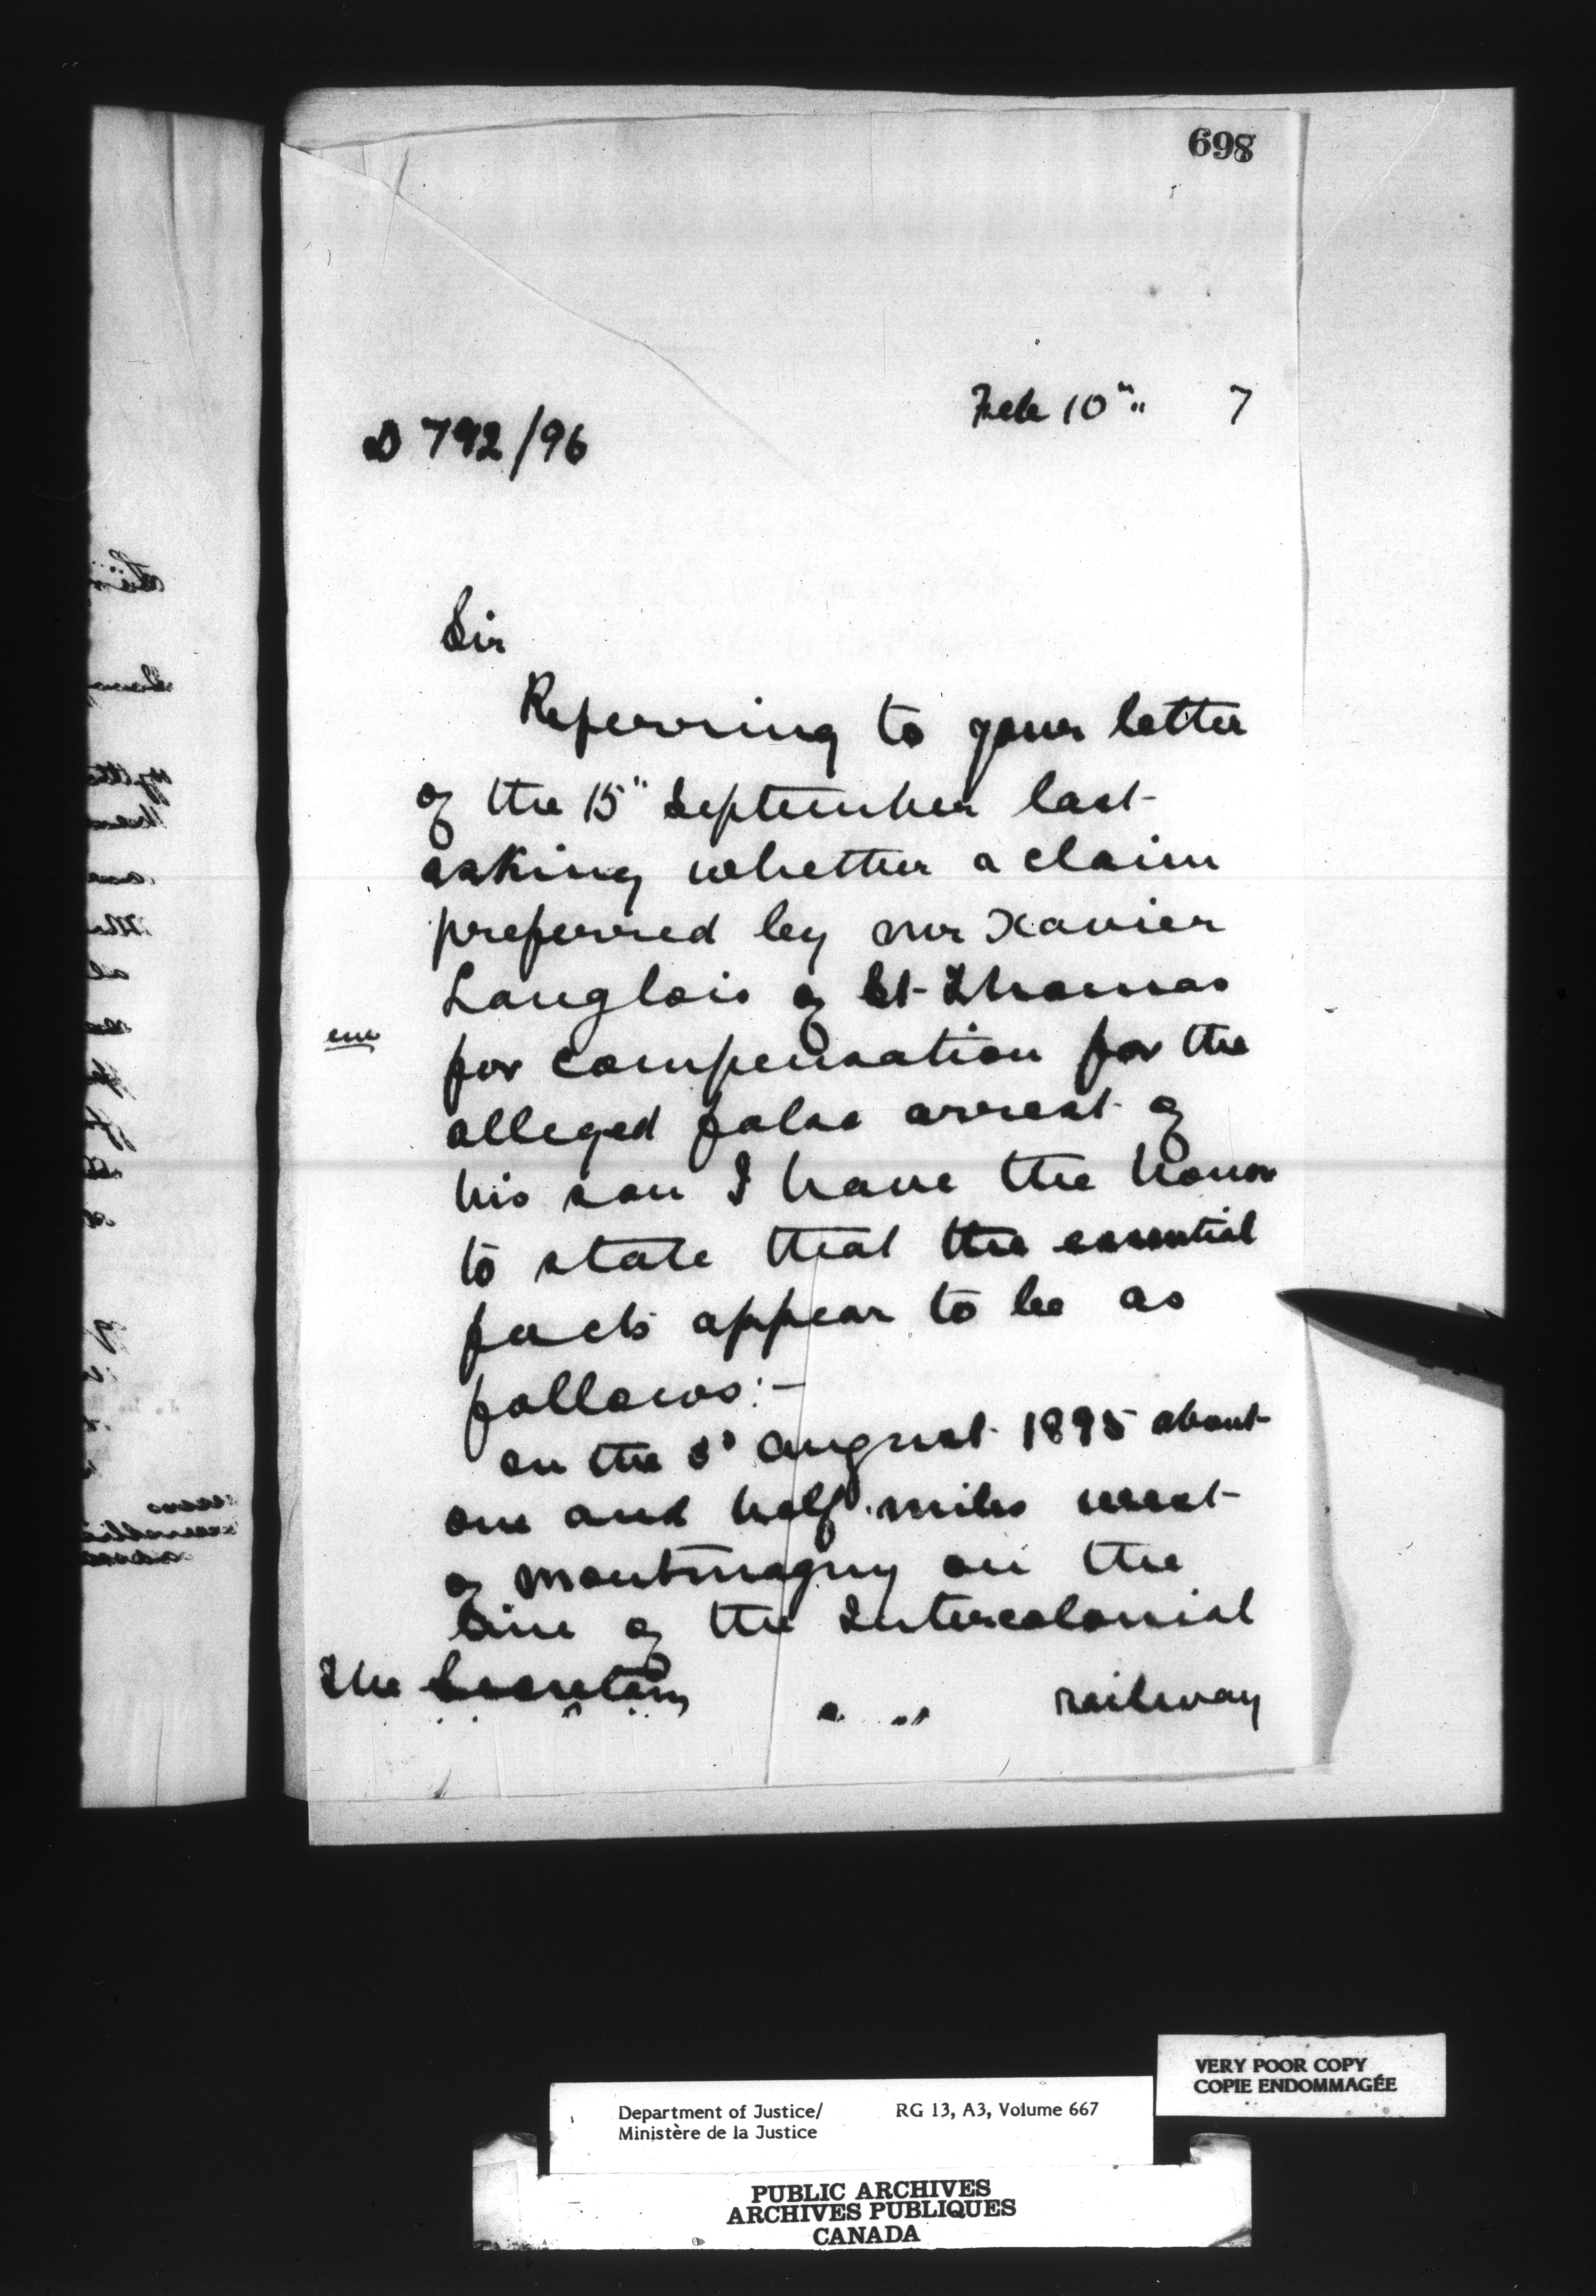 698
Feb 10th 7
D 792/96
Sir
Referring to your letter
of the 15" September last
asking whether a claim
preferred by Mr Xavier
Langlois of St Thomas
for compensation for the
alleged false arrest of
his son I have the honor
to state that the essential
facts appear to be as
follows:—
on the 3d August 1895 about
one and half miles west
of Montmagny on the
line of the Intercolonial
The Secretary
railway
VERY POOR COPY
COPIE ENDOMMAGÉE
Department of Justice/ RG 13, A3, Volume 667
Ministère de la Justice
PUBLIC ARCHIVES
ARCHIVES PUBLIQUES
CANADA